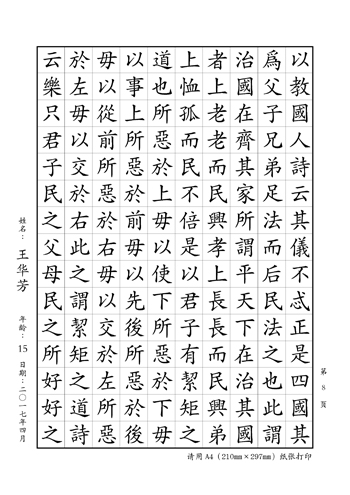 以教國人詩云其儀不忒正是四國其
爲父子兄弟足法而后民法之也此謂
治國在齊其家所謂平天下在治其國
者上老老而民興孝上長長而民興弟
上恤孤而民不倍是以君子有絜矩之
道也所惡於上毋以使下所惡於下毋
以事上所惡於前毋以先後所惡於後
毋以從前所惡於右毋以交於左所惡
於左毋以交於右此之謂絜矩之道詩
云樂只君子民之父母民之所好好之
姓名：王华芳 年龄：15 日期：二〇一七年四月
第 8 页
请用A4（210mm×297mm）纸张打印